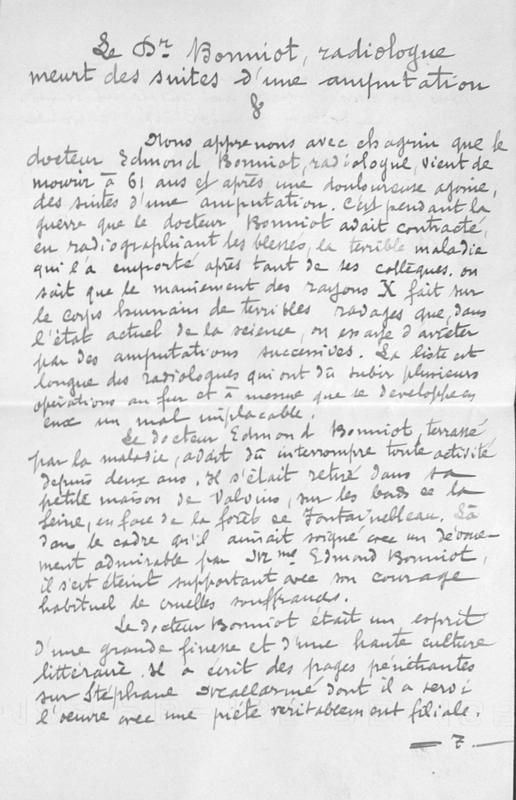 Le Dr Bonniot, radiologue
meurt des suites d'une amputation
Nous apprenons avec chagrin que le
docteur Edmond Bonniot, radiologue, vient de
mourir à 61 ans et après une douloureuse agonie,
des suites d'une amputation. C'est pendant la
guerre que le docteur Bonniot avait contracté,
en radiographiant les blessés, la terrible maladie
qui l'a emporté après tant de ses collègues. On
sait que le maniement des rayons X fait sur
le corps humain de terribles ravages que, dans
l'état actuel de la science, on essaye d'arrêter
par des amputations successives. La liste est
longue des radiologues qui ont dû subir plusieurs
opérations au fur et à mesure que se developpe en
eux un mal implacable.
Le docteur Edmond Bonniot, terrassé
par la maladie, avait dû interrompre toute activité
depuis deux ans. Il s'était retiré dans sa
petite maison de Valvins, sur les bords de la
Seine, en face de la forêt de Fontainebleau. Là
dans le cadre qu'il aimait soigné avec un dévoue-
ment admirable par Mme Edmond Bonniot,
il s'est éteint supportant avec son courage
habituel de cruelles souffrances.
Le docteur Bonniot était un esprit
d'une grande finesse et d'une haute culture
littéraire. Il a écrit des pages pénétrantes
sur Stéphane Mallarmé dont il a servi
l'oeuvre avec une piété véritablement filiale.